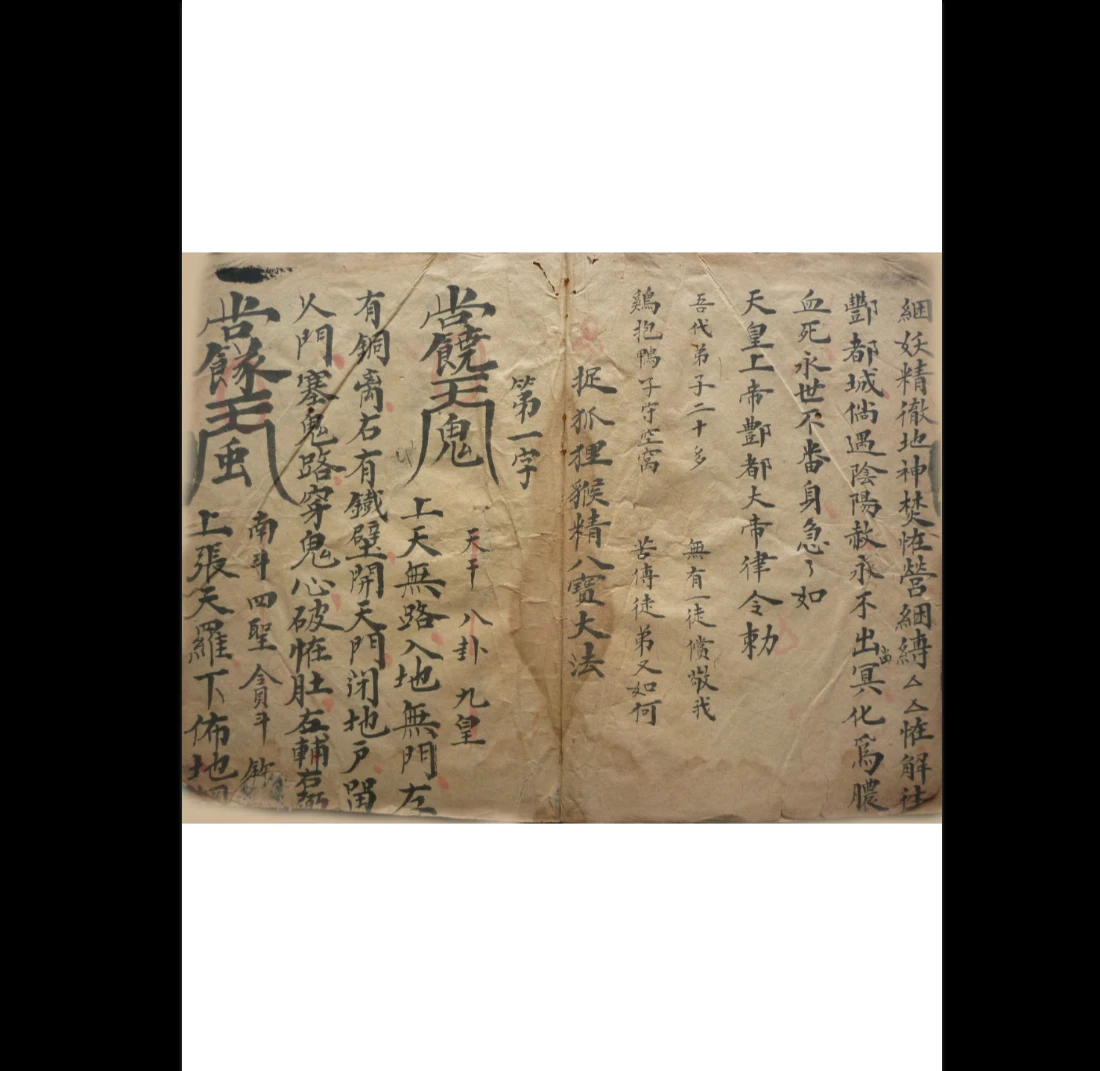 綑妖精徹地神焚恠營綑縛厶厶恠解往
酆都城倘遇陰陽赦永不出冥化爲膿
血死永世不番身急〻如
天皇上帝酆都大帝律令勅
吾代弟子二十多 無有一徒償敬我
鷄抱鴨子守空窩 苦傳徒弟又如何
捉狐狸猴精八寶大法
第一字
天干 八卦 九皇
上天無路入地無門左
有銅离右有鐵壁開天門闭地户留
人門塞鬼路穿鬼心破恠肚左輔右弼
南斗四聖貪斗
上張天羅下佈地網